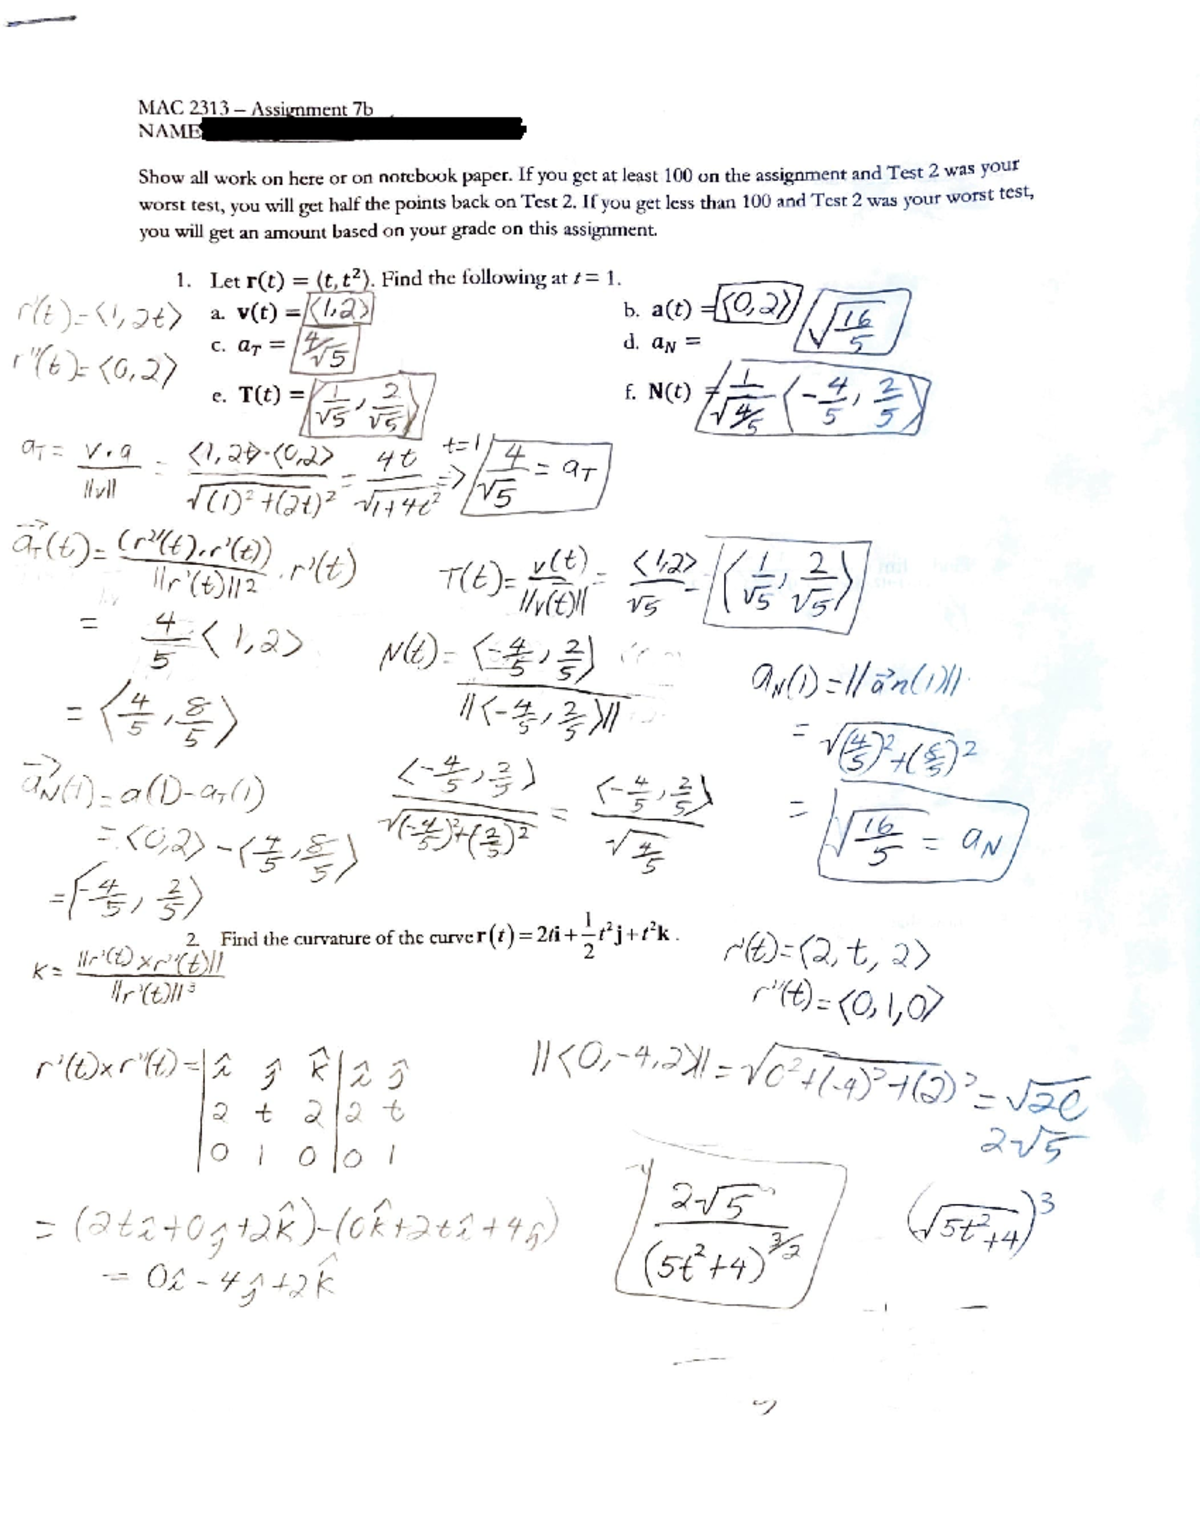 MAC 2313 – Assignment 7b
NAME
Show all work on here or on notebook paper. If you get at least 100 on the assignment and Test 2 was your
worst test, you will get half the points back on Test 2. If you get less than 100 and Test 2 was your worst test,
you will get an amount based on your grade on this assignment.
1. Let r(t) = ⟨t, t²⟩. Find the following at t = 1.
r'(t)=⟨1, 2t⟩ a. v(t) = ⟨1,2⟩ b. a(t) = ⟨0,2⟩ √16/5
r''(t)=⟨0,2⟩ c. a_T = 4/√5 d. a_N =
e. T(t) = ⟨1/√5, 2/√5⟩ f. N(t) = 1/√4/5 ⟨-4/5, 2/5⟩
a_T = v·a/||v|| = ⟨1,2t⟩·⟨0,2⟩/√(1)²+(2t)² = 4t/√1+4t² t=1 => 4/√5 = a_T
a_T(t)= (r''(t)·r'(t))/||r'(t)||2 · r'(t) T(t)= v(t)/||v(t)|| = ⟨1,2⟩/√5 = ⟨1/√5, 2/√5⟩
= 4/5 ⟨1,2⟩ N(t)= ⟨-4/5, 2/5⟩/||⟨-4/5, 2/5⟩|| a_N(1)=||a⃗n(1)||
= ⟨4/5, 8/5⟩ = √(4/5)²+(8/5)²
a⃗_N(1)=a(1)-a_T(1) ⟨-4/5, 2/5⟩/√(-4/5)²+(2/5)² = ⟨-4/5, 2/5⟩/√4/5 = √16/5 = a_N
= ⟨0,2⟩-⟨4/5, 8/5⟩
=⟨-4/5, 2/5⟩
2. Find the curvature of the curve r(t)=2ti+1/2t²j+t²k. r'(t)=⟨2, t, 2⟩
K= ||r'(t)×r''(t)||/||r'(t)||³ r''(t)=⟨0,1,0⟩
r'(t)×r''(t)=|î ĵ k̂|î ĵ ||⟨0,-4,2⟩||=√0²+(-4)²+(2)²=√20
|2 t 2|2 t 2√5
|0 1 0|0 1
= (2tî+0ĵ+2k̂)-(0k̂+2tî+4ĵ) 2√5/(5t²+4)^3/2 (√5t²+4)³
= 0î-4ĵ+2k̂